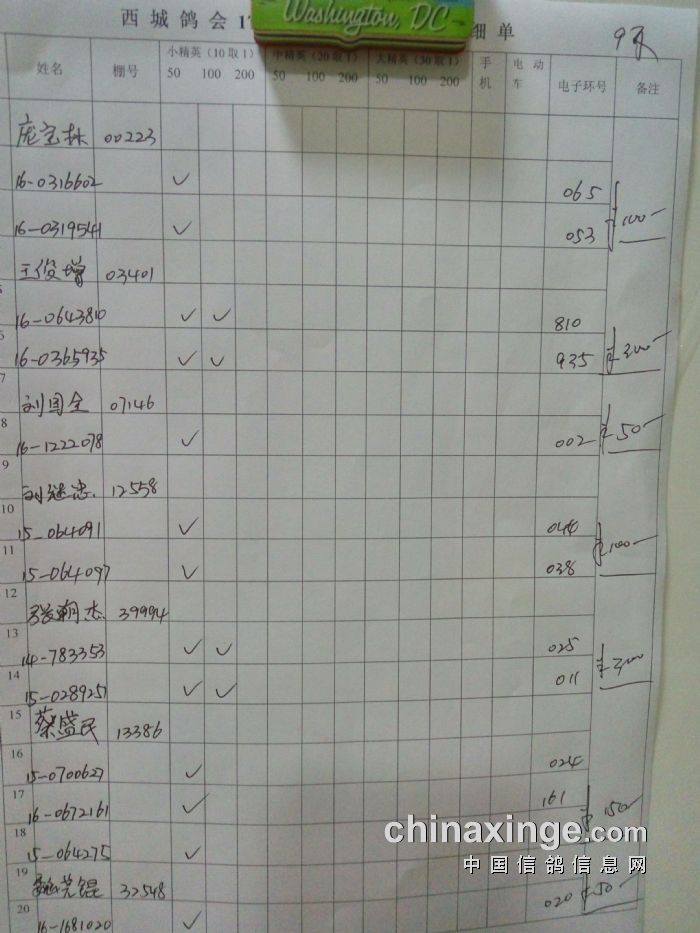 Washington, DC
西城鸽会17 细单
9页
姓名 棚号 小精英(10取1) 中精英(20取1) 大精英(30取1) 手机 电动车 电子环号 备注
50 100 200 50 100 200 50 100 200
庞宝林 00223
16-0316602 ✓ 065
16-0319541 ✓ 053 100-
王俊增 03401
16-0643810 ✓ ✓ 810
16-0365935 ✓ ✓ 935 300-
7 刘国全 07146
8 16-1222078 ✓ 002 50-
9 刘继忠 12558
10 15-064091 ✓ 044
11 15-064097 ✓ 038 100-
12 张朝杰 39994
13 14-783353 ✓ ✓ 025
14 15-0289251 ✓ ✓ 011 300
15 蔡盛民 13386
16 15-0700627 ✓ 024
17 16-0672161 ✓ 161 150-
18 15-064275 ✓
19 32548
20 16-1681020 ✓ 020 50-
chinaxinge.com
中国信鸽信息网